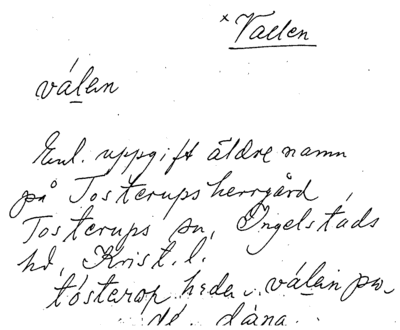 × Vallen
válen
Enl. uppgift äldre namn
på Tosterups herrgård,
Tosterups sn, Ingelstads
hd, Krist. l.
tósterop heder válen